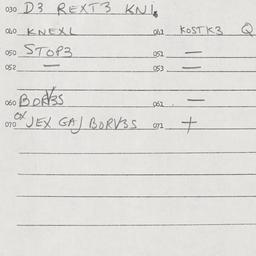 030 D3 REXT3 KNL
040 KNEXL 041 KOSTK3 Q
050 STOP3 051 —
052 — 053 —
060 BORV3S 061 —
070 JEX GAJ BORV3S 071 +